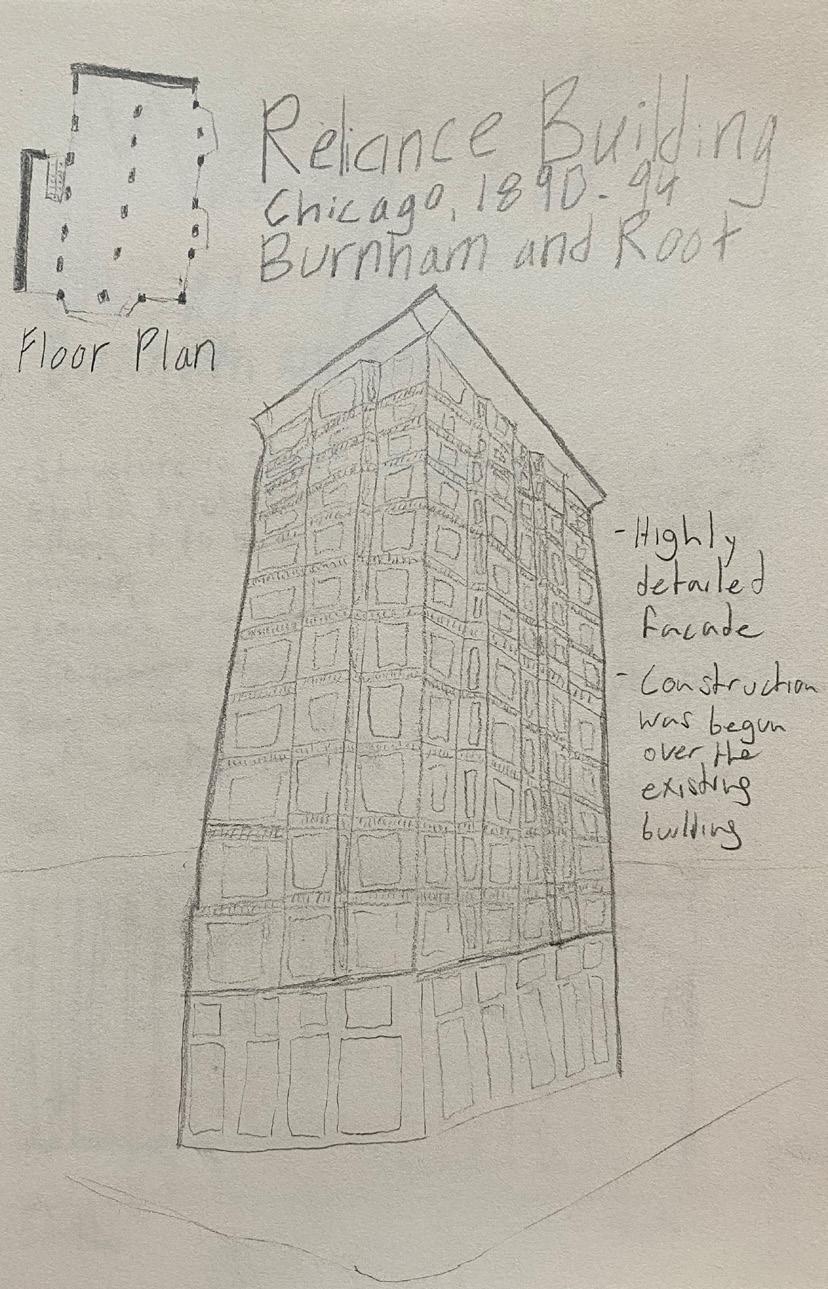 Reliance Building
Chicago, 1890-94
Burnham and Root
Floor Plan
- Highly
detailed
facade
- Construction
was begun
over the
existing
building